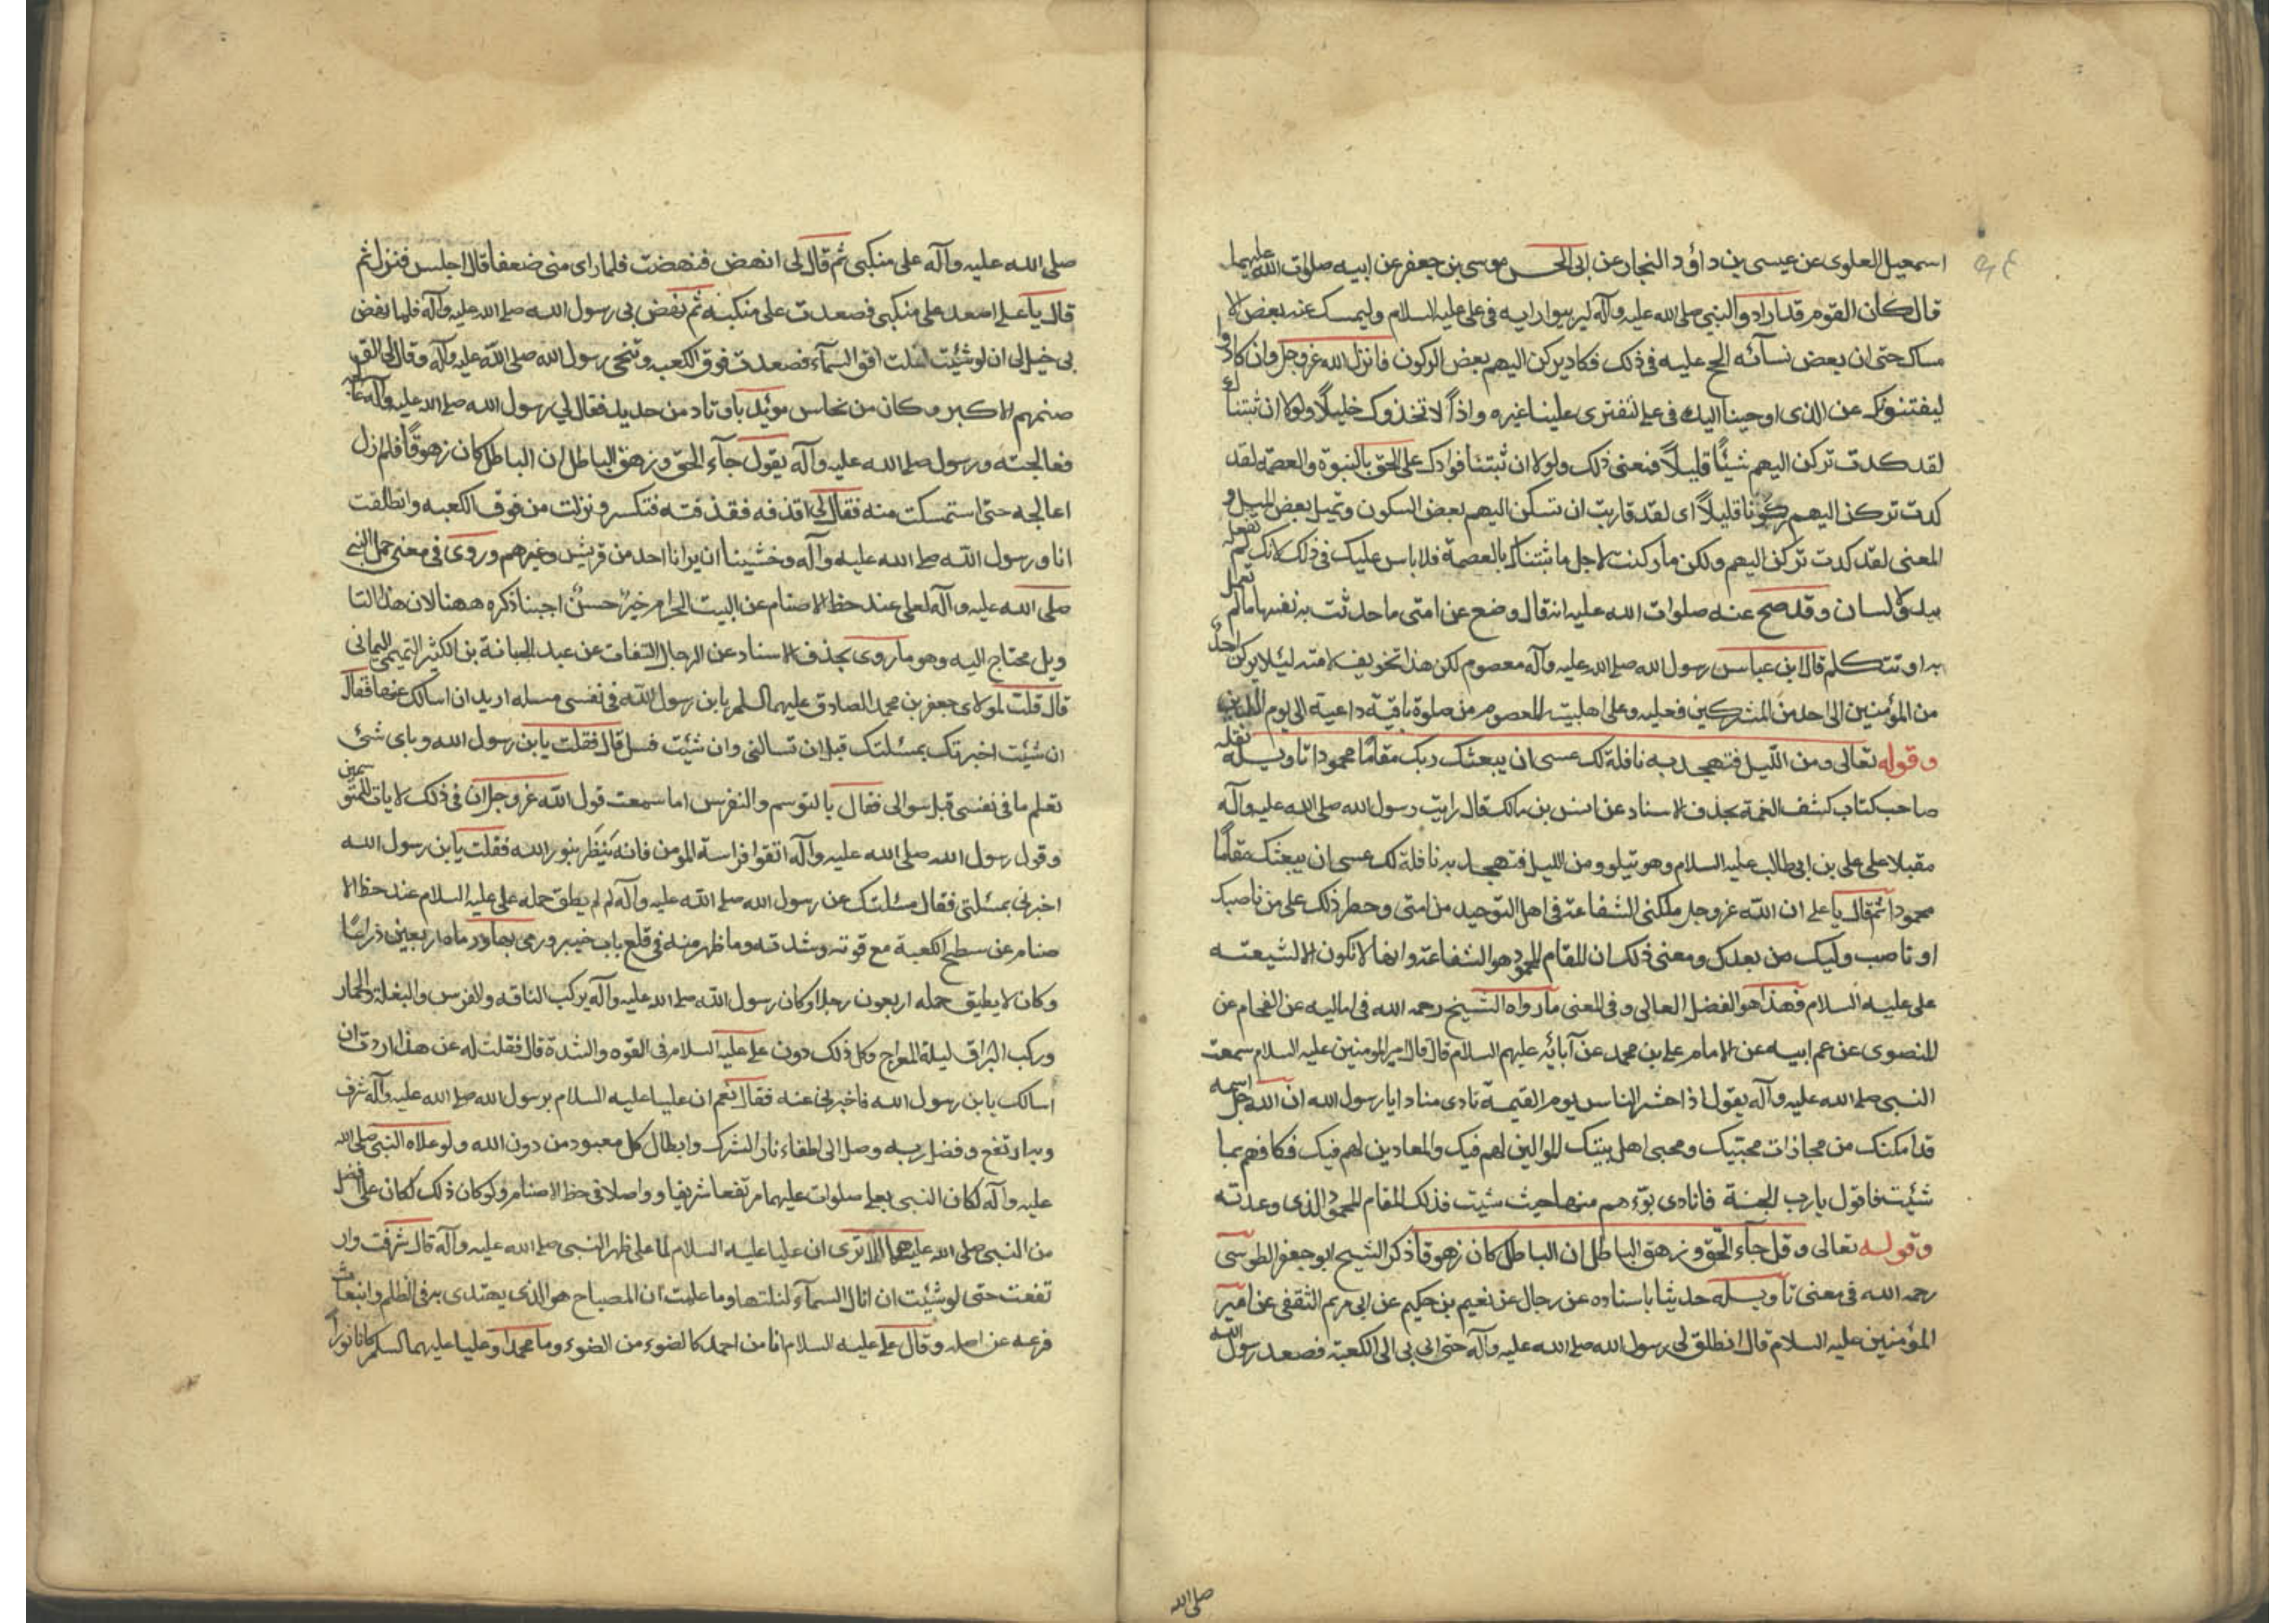 اسمعيل العلوى عن عيسى بن داؤد النجار عن ابى الحسن موسى بن جعفر عن ابيه صلوات الله عليهما
قال كان القوم قد ارادوا النبى صلى الله عليه وآله ليريبوا رايه فى على عليه السلام وليمسك عنه بعض الا
مساك حتى ان بعض نسائه الح عليه فى ذلك فكاد يركن اليهم بعض الركون فانزل الله عز وجل وان كادوا
ليفتنونك عن الذى اوحينا اليك فى على لتفترى علينا غيره واذاً لاتخذوك خليلاً ولولا ان ثبتناك
لقد كدت تركن اليهم شيئاً قليلاً فمعنى ذلك ولولا ان ثبتنا فوادك على الحق بالنبوة والعصمة لقد
كدت تركن اليهم ركونا قليلاً اى لقد قاربت ان تسكن اليهم بعض السكون وتميل بعض الميل و
المعنى لقد كدت تركن اليهم ولكن ما ركنت لاجل ما ثبتناك بالعصمة فلا باس عليك فى ذلك لانك لم تفعله
بيد ولا لسان وقد صح عنه صلوات الله عليه انه قال وضع عن امتى ما حدثت به نفسها ما لم تعمل
به او تتكلم قال ابن عباس رسول الله صلى الله عليه وآله معصوم لكن هذا تخويف لامته ليئلا يركن احد
من المؤمنين الى احد من المشركين فعليه وعلى اهلبيته المعصوم من صلوة باقية داعية الى يوم الدين
وقوله تعالى ومن الليل فتهجد به نافلة لك عسى ان يبعثك ربك مقاماً محمودا تاويله نقله
صاحب كتاب كشف الغمة بحذف الاسناد عن انس بن مالك قال رايت رسول الله صلى الله عليه وآله
مقبلا على على بن ابى طالب عليه السلام وهو يتلو ومن الليل فتهجد به نافلة لك عسى ان يبعثك مقاماً
محمودا ثم قال يا على ان الله عز وجل ملكنى الشفاعة فى اهل التوحيد من امتى وحظر ذلك على من ناصبك
او ناصب وليك من بعدك ومعنى ذلك ان المقام المحمود هو الشفاعة وانها لا تكون الا لشيعته
على عليه السلام فهذا هو الفضل العالى وفى المعنى ما رواه الشيخ رحمه الله فى اماليه عن الفحام عن
المنصورى عن عم ابيه عن الامام على بن محمد عن آبائه عليهم السلام قال قال امير المومنين عليه السلام سمعت
النبى صلى الله عليه وآله يقول اذا حشر الناس يوم القيمة نادى منادا يا رسول الله ان الله جل اسمه
قد امكنك من مجازات محبتيك ومحبى اهل بيتك الموالين لهم فيك والمعادين لهم فيك فكافهم بما
شئت فاقول يا رب الجنة فانادى بوءهم منها حيث شيت فذلك المقام المحمود الذى وعدته
وقوله تعالى وقل جاء الحق وزهق الباطل ان الباطل كان زهوقا ذكر الشيخ ابو جعفر الطوسى
رحمه الله فى معنى تاويله حديثا باسناده عن رجال عن نعيم بن حكيم عن ابى مريم الثقفى عن امير
المؤمنين عليه السلام قال انطلق لى رسول الله صلى الله عليه وآله حتى اتى بى الى الكعبة فصعد رسول الله
صلى الله
صلى الله عليه وآله على منكبى ثم قال لى انهض فنهضت فلما راى منى ضعفا قال اجلس فنزل ثم
قال يا على اصعد على منكبى فصعدت على منكبه ثم نهض بى رسول الله صلى الله عليه وآله فلما نهض
بى خيل لى ان لو شئت لنلت افق السماء فصعدت فوق الكعبه وتنحى رسول الله صلى الله عليه وآله وقال لى الق
صنمهم الاكبر وكان من نحاس موئد باوتاد من حديد فقال لي رسول الله صلى الله عليه وآله عالجه
فعالجته ورسول صلى الله عليه وآله يقول جاء الحق وزهق الباطل ان الباطل كان زهوقاً فلم ازل
اعالجه حتى استمسكت منه فقال لى اقذفه فقذفته فتكسر ونزلت من فوق الكعبه وانطلقت
انا ورسول الله صلى الله عليه وآله وخشينا ان يرانا احد من قريش وغيرهم وروى فى معنى حمل النبى
صلى الله عليه وآله لعلى عند حط الاصنام عن البيت الحرام خبر حسن اجبنا ذكره ههنا لان هذا التا
ويل محتاج اليه وهو ما روى بحذف الاسناد عن الرجال الثقات عن عبد الجبانة بن الكثير التميمى اليمانى
قال قلت لمولاى جعفر بن محمد الصادق عليهما السلم يا بن رسول الله فى نفسى مسله اريد ان اسالك عنها فقال
ان شئت اخبرتك بمسئلتك قبل ان تسالنى وان شئت فسل قال فقلت يا بن رسول الله وباى شئ
تعلم ما فى نفسى قبل سوالى فقال بالتوسم والتفرس اما سمعت قول الله عز وجل ان فى ذلك لايات للمتوسمين
وقول رسول الله صلى الله عليه وآله اتقوا فراسة المومن فانه ينظر بنور الله فقلت يا بن رسول الله
اخبرنى بمسئلتى فقال مسئلتك عن رسول الله صلى الله عليه وآله لم لم يطق حمله على عليه السلام عند حط الا
صنام عن سطح الكعبة مع قوته وشدته وما ظهر منه فى قلع باب خيبر ورمى بها ورماه اربعين ذراعاً
وكان لا يطيق حمله اربعون رجلا وكان رسول الله صلى الله عليه وآله يركب الناقه والفرس والبغلة والحمار
وركب البراق ليلة المعراج وكل ذلك دون على عليه السلام فى القوه والشدة قال فقلت له عن هذا اردت ان
اسالك يا بن رسول الله فاخبرنى عنه فقال نعم ان عليا عليه السلام برسول الله صلى الله عليه وآله شرف
وبه ارتفع وفضل وبه وصل الى اطفاء نار الشرك وابطال كل معبود من دون الله ولو علاه النبى صلى الله
عليه وآله لكان النبى بعلى صلوات عليهما مرتفعا شريفا وواصلا فى حط الاصنام ولو كان ذلك لكان على افضل
من النبى صلى الله عليهما الا ترى ان عليا عليه السلام لما على ظهر النبى صلى الله عليه وآله قال شرفت وار
تفعت حتى لو شئت ان انال السماء لنلتها وما علمت ان المصباح هو الذى يهتدى به فى الظلم وانبعاث
فرعه عن اصله وقال على عليه السلام انا من احمد كالضوء من الضوء وما محمدا وعليا عليهما السلم كانا نوراً